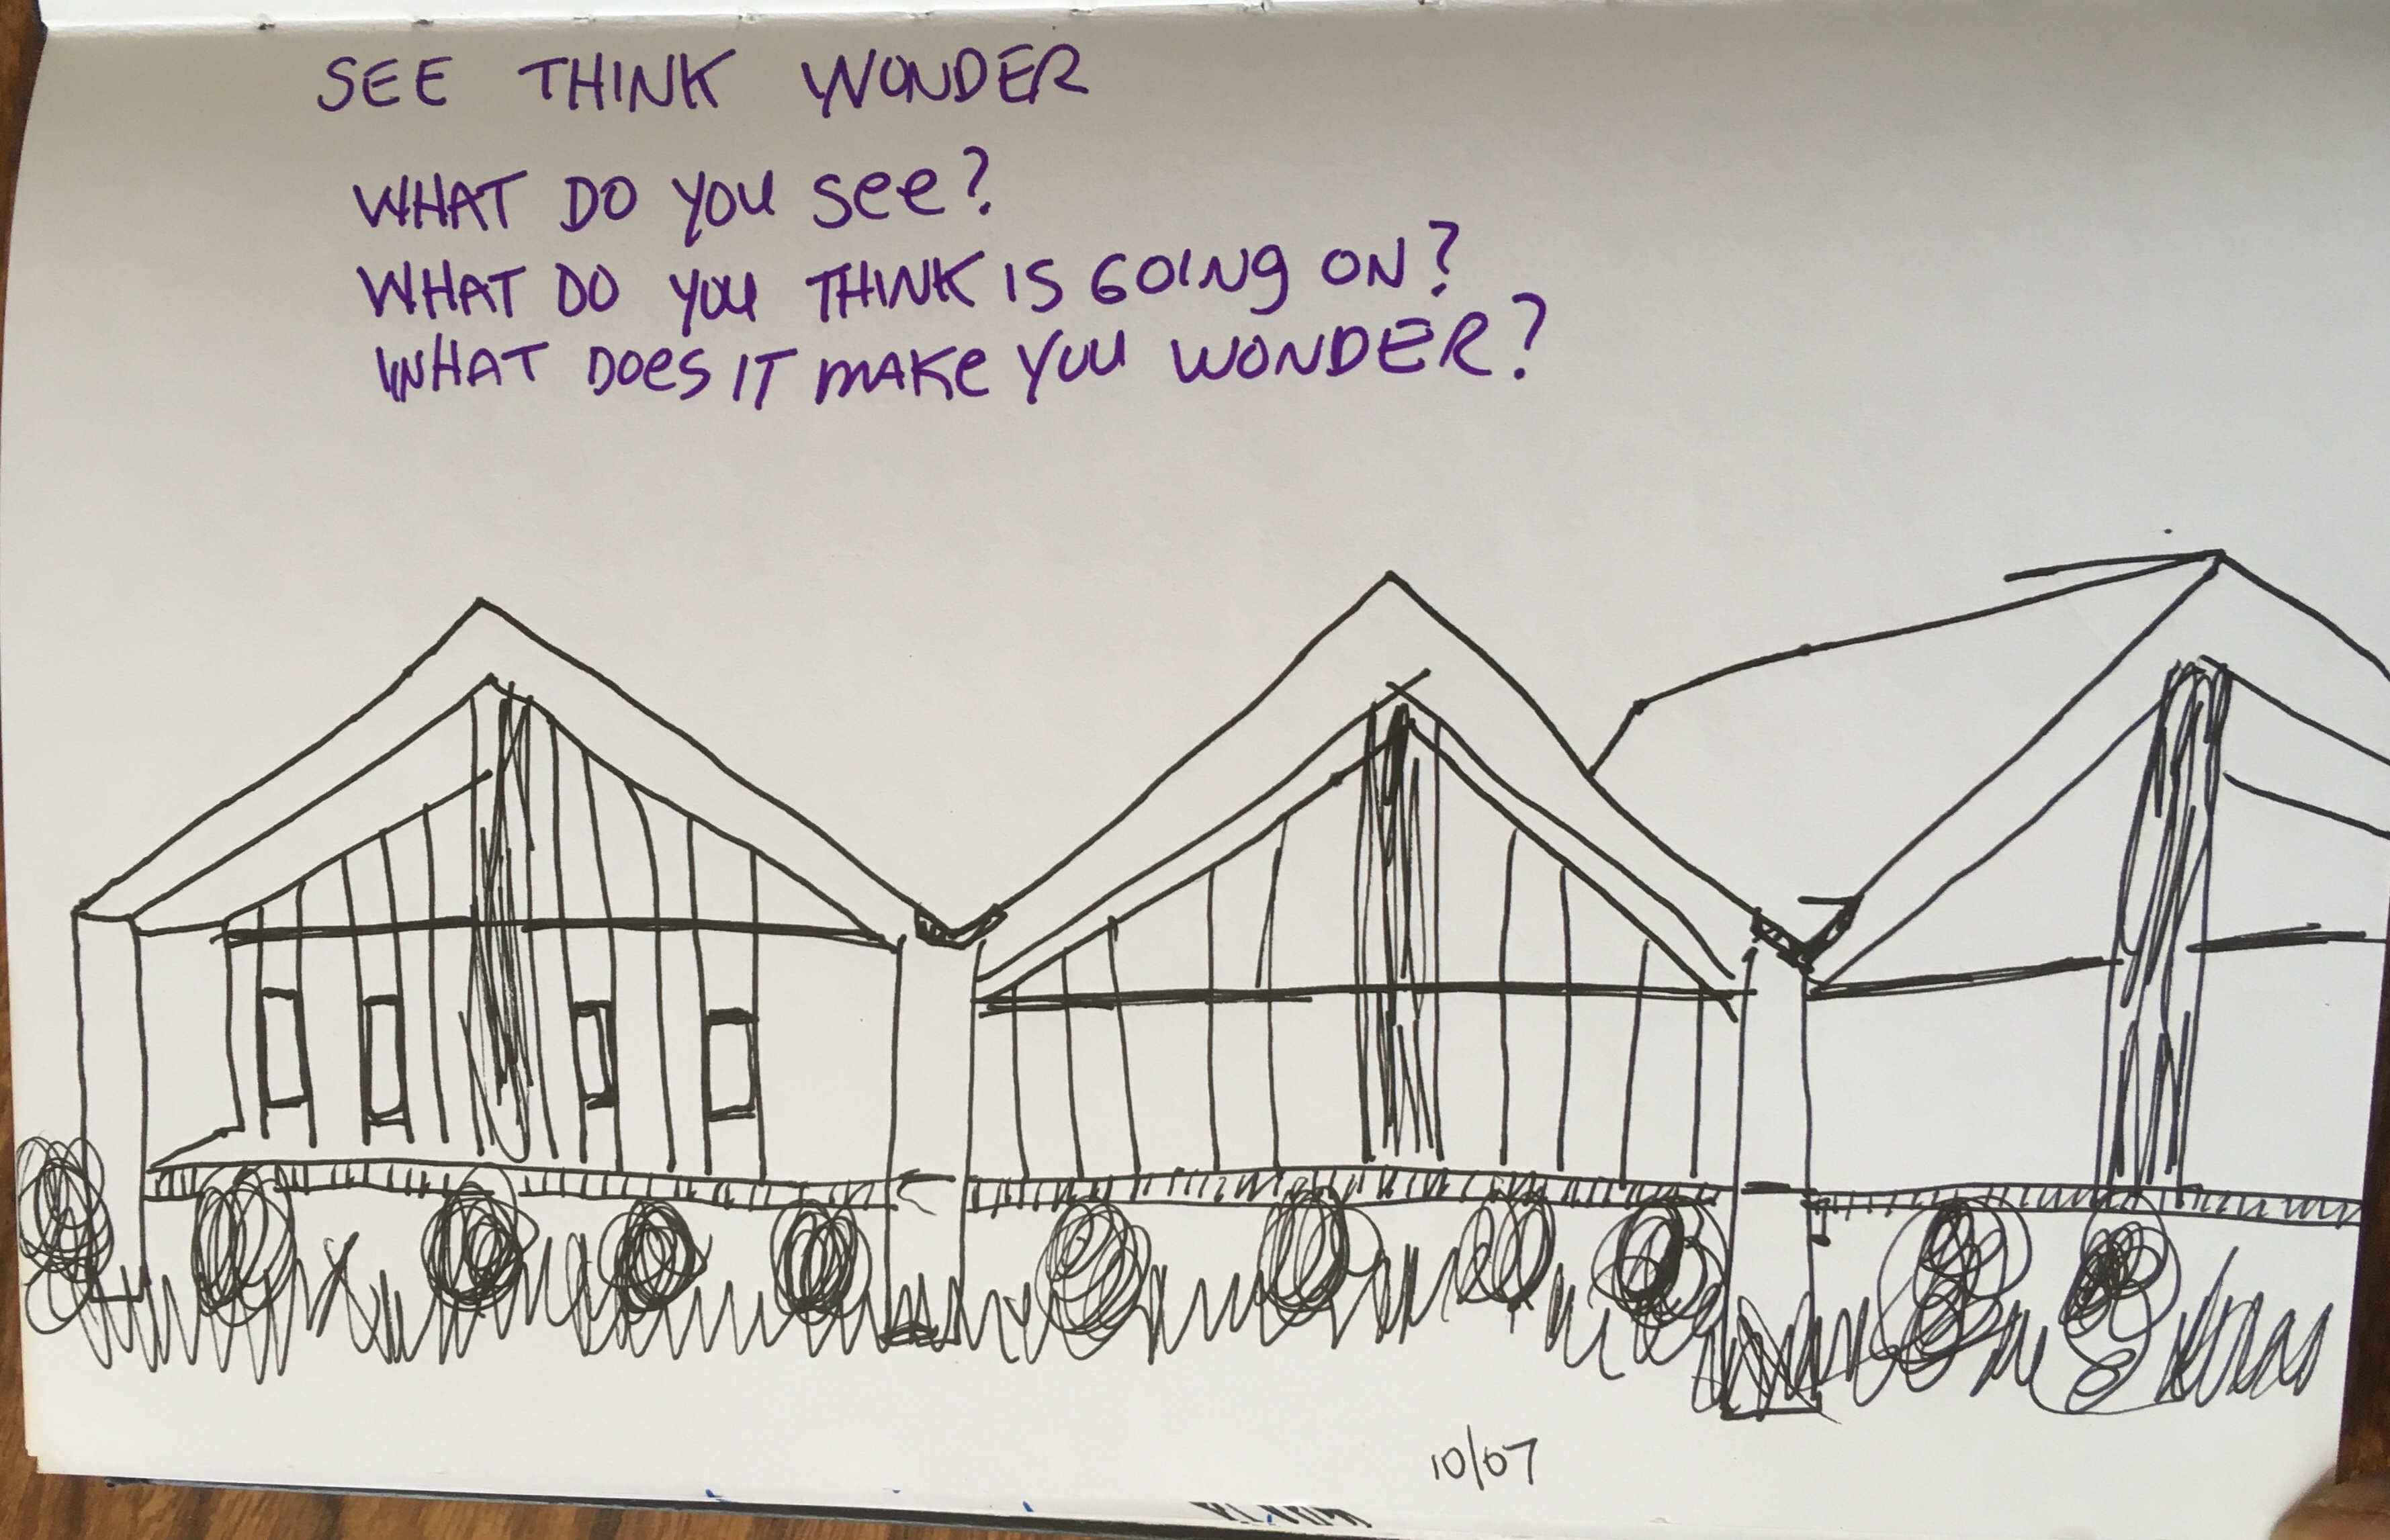 SEE THINK WONDER
WHAT DO YOU see?
WHAT DO YOU THINK IS GOING ON?
WHAT Does IT MAKe YOU WONDER?
10/07